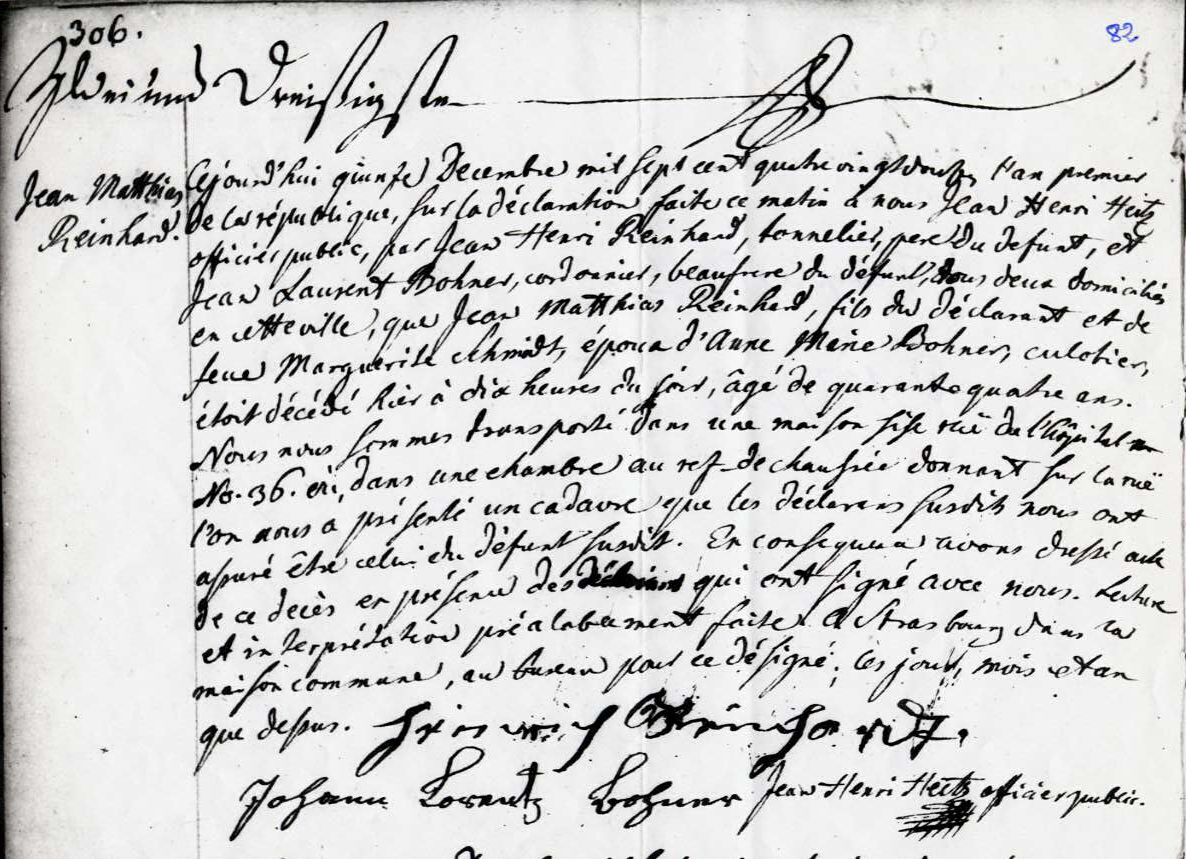 306.
82
Zwei und Dreissigste
Jean Matthias
Reinhard.
Cejourd'hui quinze Decembre mil sept cent quatre vingt douze, l'an premier
de la république, sur la déclaration faite ce matin à nous Jean Henri Heitz
officier public, par Jean Henri Reinhard, tonnelier, pere du defunt, et
Jean Laurent Bohner, cordonnier, beaufrere du défunt, tous deux domiciliés
en cette ville, que Jean Matthias Reinhard, fils du déclarant et de
feue Marguerite Schmidt, époux d'Anne Marie Bohner, culotier,
étoit décédé hier à dix heures du soir, âgé de quarante quatre ans.
Nous nous sommes transporté dans une maison sise rüe de l'hôpital
No. 36. où, dans une chambre au ref-de chaussée donnant sur la rüe
l'on nous a présenté un cadavre que les déclarans susdits nous ont
assuré être celui du défunt susdit. En consequence avons dressé acte
de ce decès en présence des qui ont signé avec nous. Lecture
et interprétation préalablement faite. A Strasbourg dans la
maison commune, au bureau pour ce désigné, les jour, mois et an
que dessus. Heinrich Reinhardt.
Johann Lorentz Bohner Jean Henri Heitz officier public.